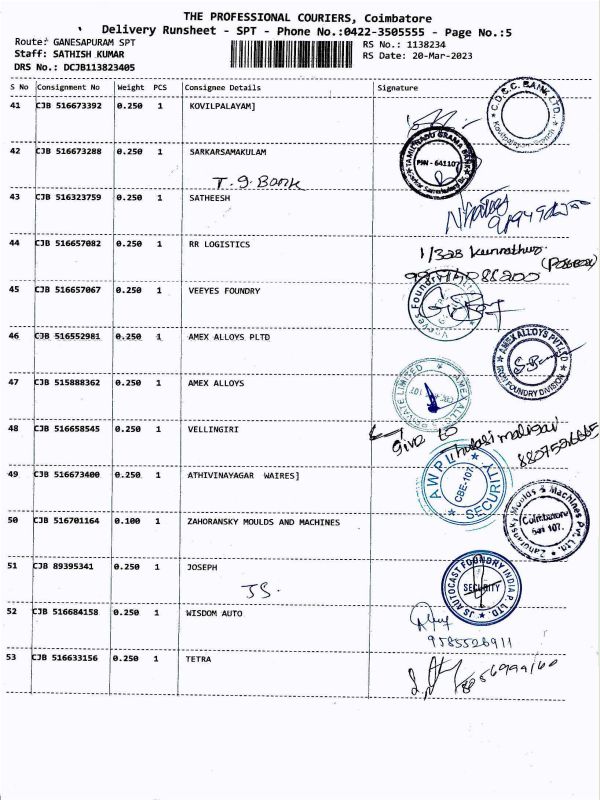 THE PROFESSIONAL COURIERS, Coimbatore
Delivery Runsheet - SPT - Phone No.:0422-3505555 - Page No.:5
Route: GANESAPURAM SPT
RS No.: 1138234
Staff: SATHISH KUMAR
RS Date: 20-Mar-2023
DRS No.: DCJB113823405
S No Consignment No Weight PCS Consignee Details Signature
41 CJB 516673392 0.250 1 KOVILPALAYAM]
C.D.& C. BANK LTD.,
42 CJB 516673288 0.250 1 SARKARSAMAKULAM
TAMILNADU GRAMA BANK
PIN - 641107
T.G. Bank
43 CJB 516323759 0.250 1 SATHEESH
44 CJB 516657082 0.250 1 RR LOGISTICS
1/328 Kunnathur
45 CJB 516657067 0.250 1 VEEYES FOUNDRY
Veeyes Foundry
46 CJB 516552981 0.250 1 AMEX ALLOYS PLTD
AMEX ALLOYS PVT.LTD
IRON FOUNDRY DIVISION
47 CJB 515888362 0.250 1 AMEX ALLOYS
AMEX ALLOYS PRIVATE LIMITED
48 CJB 516658545 0.250 1 VELLINGIRI
give to
49 CJB 516673400 0.250 1 ATHIVINAYAGAR WAIRES]
AWPL
CBE-107
SECURITY
50 CJB 516701164 0.100 1 ZAHORANSKY MOULDS AND MACHINES
Zahoransky Moulds & Machines Pvt. Ltd.
Coimbatore
641 107.
51 CJB 89395341 0.250 1 JOSEPH
JS.
JS AUTOCAST FOUNDRY INDIA P. LTD
SECURITY
52 CJB 516684158 0.250 1 WISDOM AUTO
9585526911
53 CJB 516633156 0.250 1 TETRA